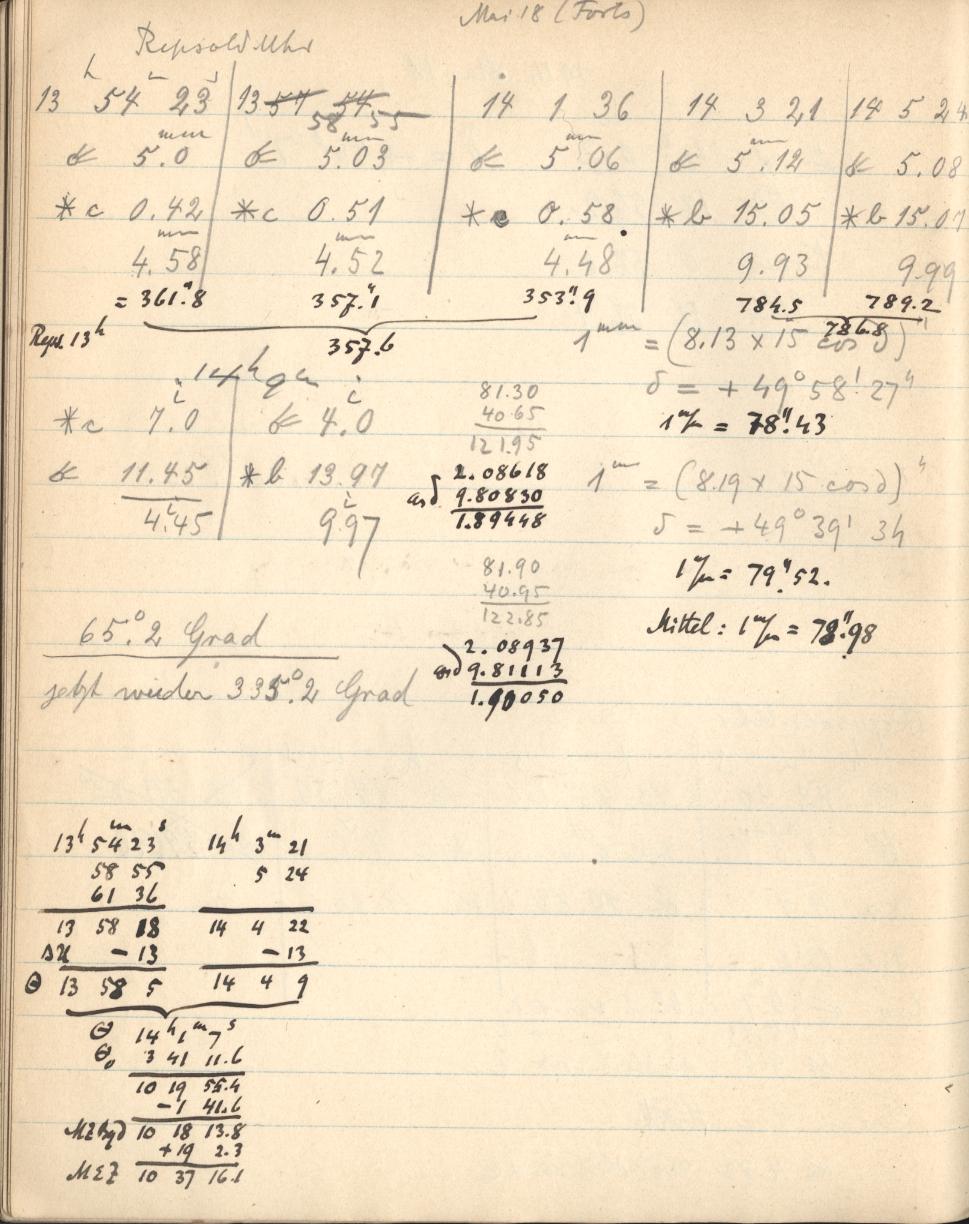 Mai 18 (Forts)
Repsold Uhr
h m s
13 54 23 | 13 57 54 | 14 1 36 | 14 3 21 | 14 5 24
58 55
☄ 5.0 mm | ☄ 5.03 mm | ☄ 5.06 mm | ☄ 5.12 mm | ☄ 5.08
*c 0.42 | *c 0.51 | *c 0.58 | *b 15.05 | *b 15.07
4.58 mm | 4.52 mm | 4.48 mm | 9.93 | 9.99
= 361".8 357."1 353".9 784.5 789.2
Reps. 13h 357.6 786.8
1mm = (8.13 x 15 cos δ)"
14h 9m
δ = + 49° 58' 27"
*c 7.0 | ☄ 4.0
1 m/m = 78".43
☄ 11.45 | *b 13.97
4.45 | 9.97
81.30
40.65
121.95
2.08618
cos δ 9.80830
1.89448
1mm = (8.19 x 15 cos δ)"
δ = + 49° 39' 34
1 m/m = 79".52.
Mittel: 1 m/m = 78".98
81.90
40.95
122.85
2.08937
cos δ 9.81113
1.90050
65.°2 Grad
jetzt wieder 335.°2 Grad
13h 54m 23s 14h 3m 21
58 55 5 24
61 36
13 58 18 14 4 22
ΔU - 13 - 13
Θ 13 58 5 14 4 9
Θ 14h 1m 7s
Θ0 3 41 11.6
10 19 55.4
-1 41.6
MZ Bgd 10 18 13.8
+ 19 2.3
MEZ 10 37 16.1